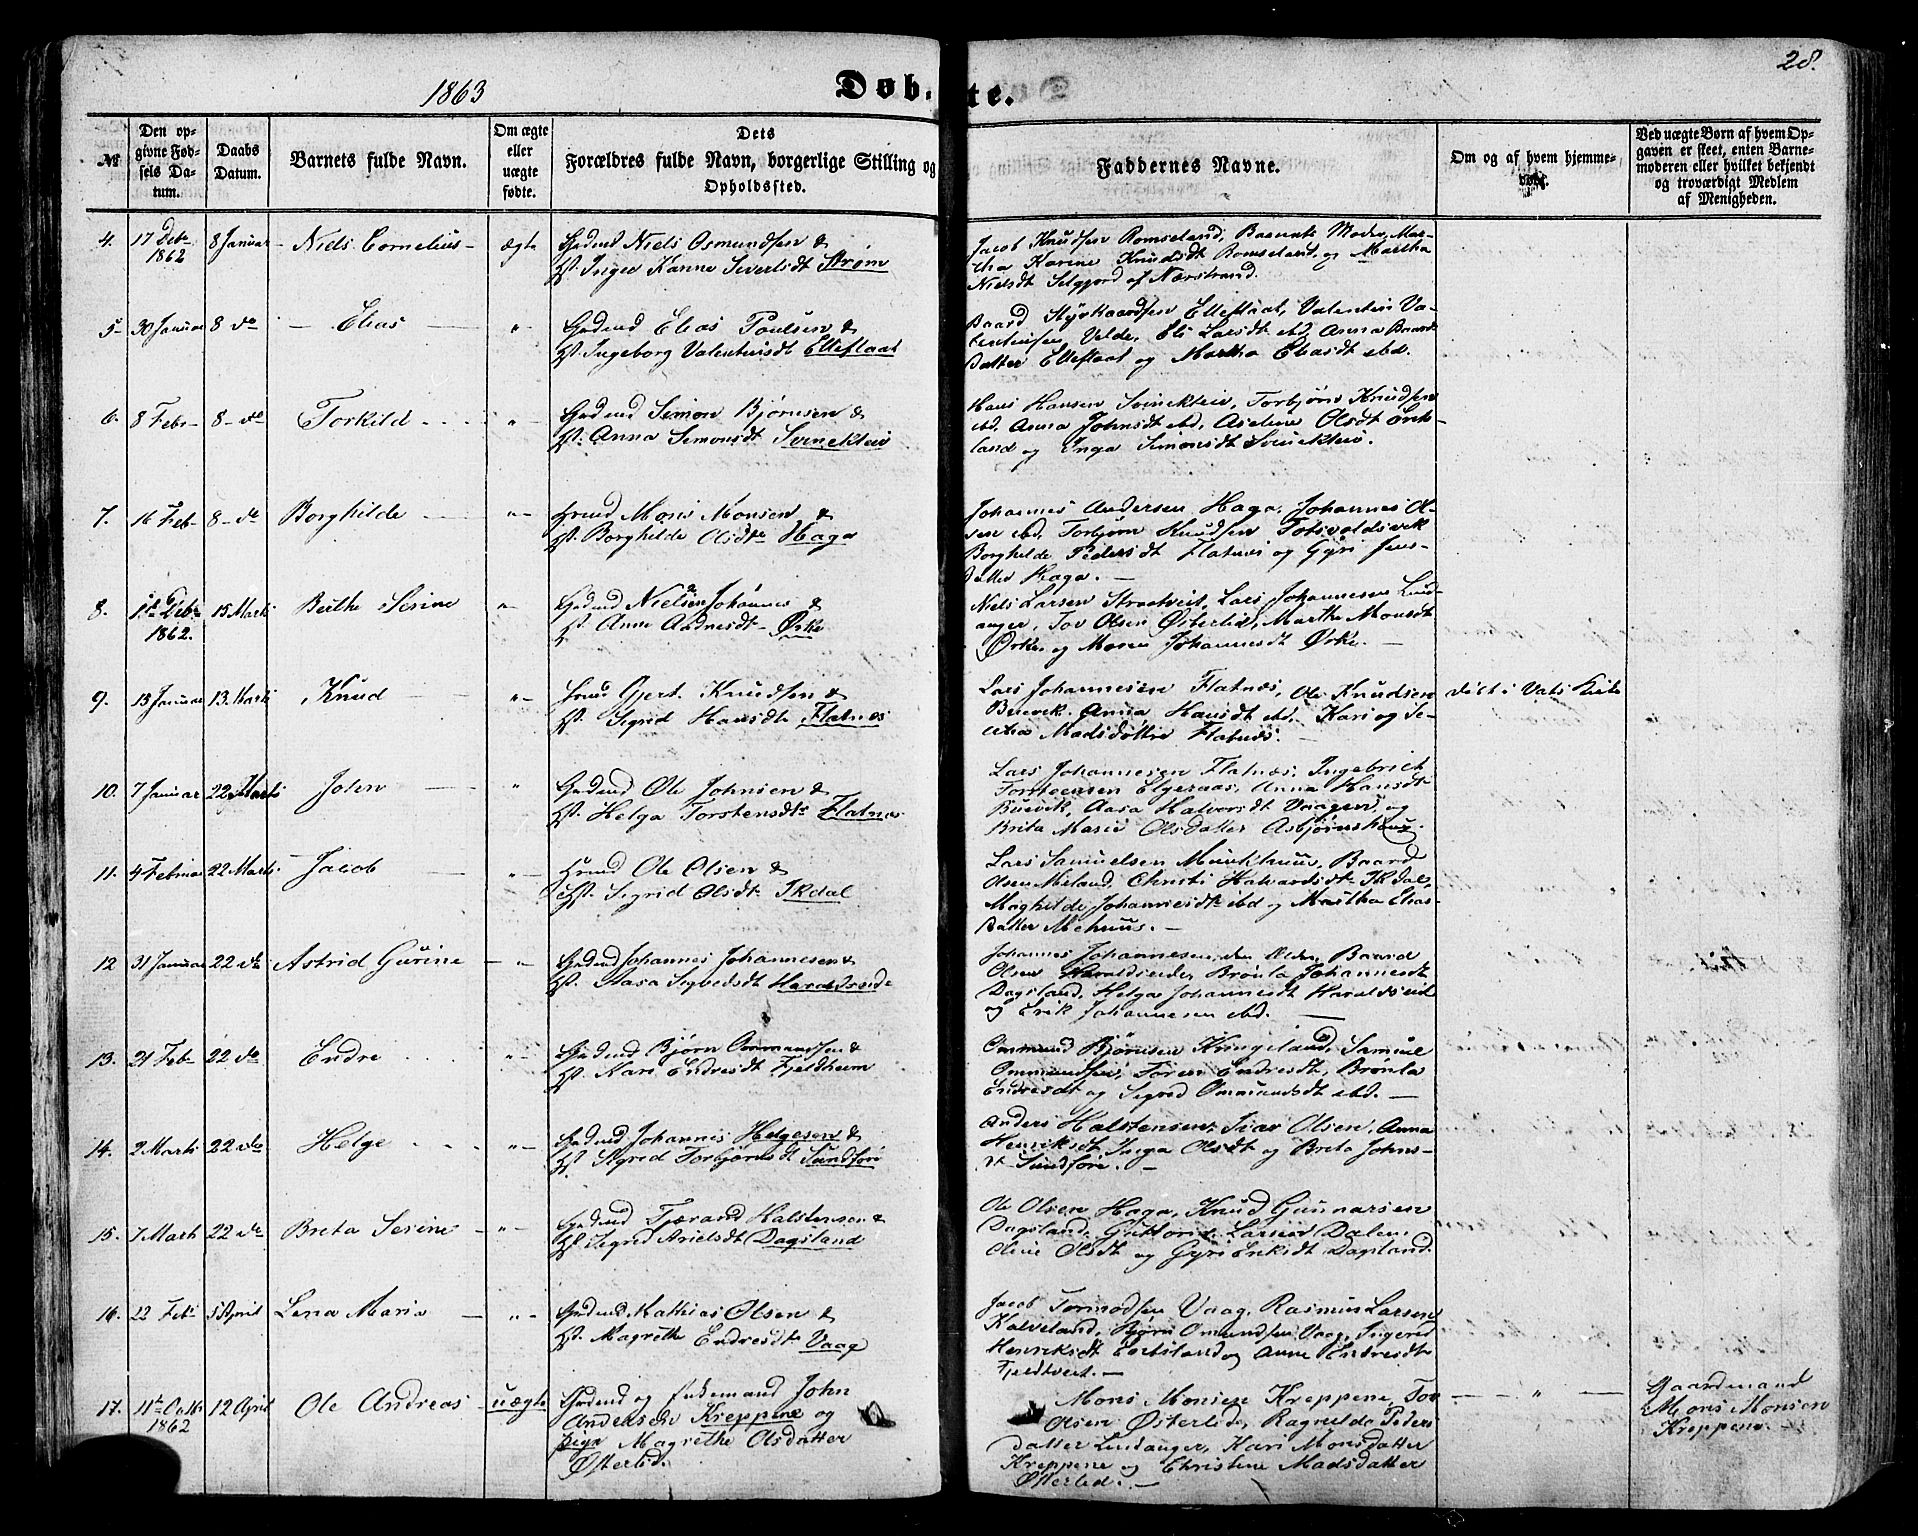 28.
1863
Døb- te.
No
Den op-
givne Fød-
sels Da-
tum.
Daabs
Datum.
Barnets fulde Navn.
Om ægte
eller
uægte
fødte.
Dets
Forældres fulde Navn, borgerlige Stilling og
Opholdssted.
Faddernes Navne.
Om og af hvem hjemme-
døbt.
Ved uægte Børn af hvem Op-
gaven er skeet, enten Barne-
moderen eller hvilket bekjendt
og troværdigt Medlem
af Menigheden.
4. 17 Debr 1862 8 Januar Niels Cornelius ægte
Gadmd Niels Osmundsen &
Hst. Inger Karine Siverlsdt Strøm
Jacob Knudsen Romseland, Barnets Moder, Mar-
tha Karine Knudsdt Romseland, og Martha
Nielsdt Selgjord af Nærstrand.
5 30 Januar 8 do Elias "
Gadmd Elias Poulsen &
Hst. Ingeborg Valentinsdt Elleflaat
Baard Elleflaat, Valentin Va-
lentinsen Velde, Eli Larsdt ibd, Anna Baards
datter Elleflaat og Martha Eliasdt ibd.
6. 8 Febr 8 do Torkild "
Gadmd Simon Bjørnsen &
Hst. Anna Simonsdt Svinekleiv
Hans Hansen Svinekleiv, Torbjørn Knudsen
ibd, Anna Johnsdt ibd, Olsdt
land og Inga Simonsdt Svinekleiv.
7. 16 Feb 8 do Borghilde "
Hmd Mons Monsen &
Hst. Borghilde Olsdtr Haga
Johannes Andersen Haga, Johannes Ol-
sen ibd, Torbjørn Knudsen
Borghilde Pedersdt Flatnes og Gyri Jens-
datter Haga.
8. Debr 1862. 15 Marts Berthe Serine "
Gadmd Nielsen Johannes &
Hst. Anne Andresdt Ørke
Niels Larsen Straatveit, Lars Johannesen Lind-
anger, Tov Olsen Østerlid, Martha Monsdt
Ørke, og Maren Johannesdt Ørke.
9. 13 Januar 13 Marts Knud "
Gjert Knudsen &
Hst. Sigrid Hansdt Flatnes
Lars Johannesen Flatnes, Ole Knudsen
Buevik, Anna Hansdt ibd, Kari og Se-
Madsdøttre Flatnes.
døbt i Vats Kirke
10. 7 Januar 22 Marts John "
Gadmd Ole Johnsen &
Hst. Helga Torstensdtr Flatnes
Lars Johannesen Flatnes, Ingebrict
Torsteensen Elgeraas, Anna Hansdt
Buevik, Aasa Halvorsdt Vaagen, og
Brita Marie Olsdatter Asbjørnshaug.
11. 4 Februar 22 Marts Jacob "
Hmd Ole Olsen &
Hst. Sigrid Olsdt Ikdal
Lars Samuelsen Munkhuus, Baard
Olsen Miland, Christi Halvardsdtr Ikdal,
Maghilde Johannesdtr ibd og Martha Elias-
datter Mehuus.
12 31 Januar 22 do Astrid Gurine "
Gadmd Johannes Johannesen &
Hst. Aasa Sigbedsdt Haraldseide
Johannes Johannesen, den Ældre, Baard
Olsen Haraldseide, Brønla Johannesdt
Dagsland, Helga Johannesdt Haraldseid
og Erik Johannesen ibd.
13. 21 Feb 22 do Endre "
Gadmd Bjørn Ommundsen &
Hst. Kari Endresdt Fjeldheim
Ommund Bjørnsen Kringeland, Samuel
Ommundsen, Toren Endresdt, Brønla
Endresdt og Sigrid Ommundsdt ibd.
14. 2 Marts 22 do Helge "
Gadmd Johannes Helgesen &
Hst. Sigrid Torbjørnsdt Sundføre
Anders Halstensen, Ivar Olsen, Anna
Henriksdt, Inga Olsdt og Brita Johns-
dt Sundføre.
15. 7 Marts 22 do Brita Serine "
Gadmd Tjerand Halstensen &
Hst. Sigrid Arielsdt Dagsland
Ole Olsen Haga, Knud Gunnarsen
Dagsland, Guttorm Larsen Dalen,
Oline Olsdt og Gyri Eriksdt Dagsland.
16. 22 Feb 5 April Lena Maria "
Gadmd Mathias Olsen &
Hst. Magrethe Endresdt Vaag
Jacob Tormodsen Vaag, Rasmus Larsen
Kalveland, Bjørn Omundsen Vaag, Ingerid
Henriksdt og Anne Endresdt
Fjeldtveit.
17. 11te Octbr 1862 12 April Ole Andreas uægte
Gadmd og Enkemand John
Andersen Kreppene og
pige Magrethe Olsdatter
Østerlid.
Mons Monsen Kreppene, Tov
Olsen Østerlid, Ragnilda Peders
datter Lindanger, Kari Monsdatter
Kreppene og Christine Madsdatter
Østerlid.
"
Gaardmand
Mons Monsen
Kreppene.